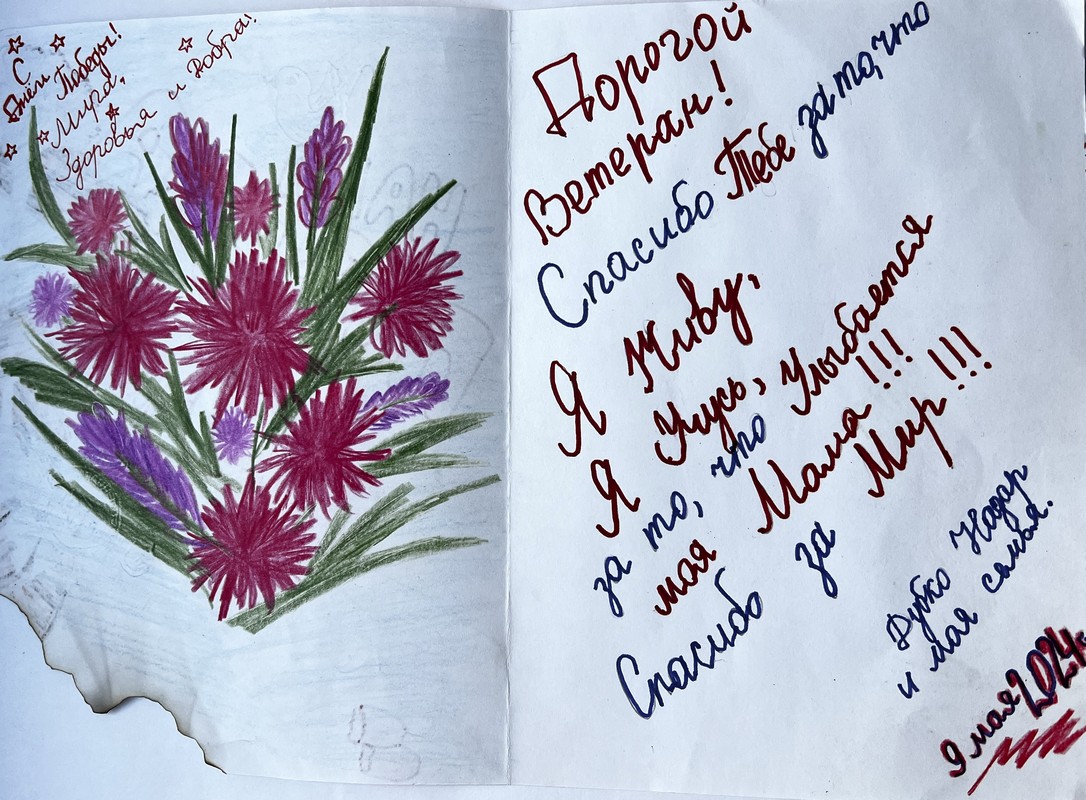 С
Днём Победы!
Мира,
Здоровья и Добра!
Дорогой
Ветеран!
Спасибо Тебе за то, что
Я Живу,
Я Учусь,
за то, что Улыбается
моя Мама!!!
Спасибо за Мир!!!
Дубко Надар
и моя семья.
9 мая 2024г